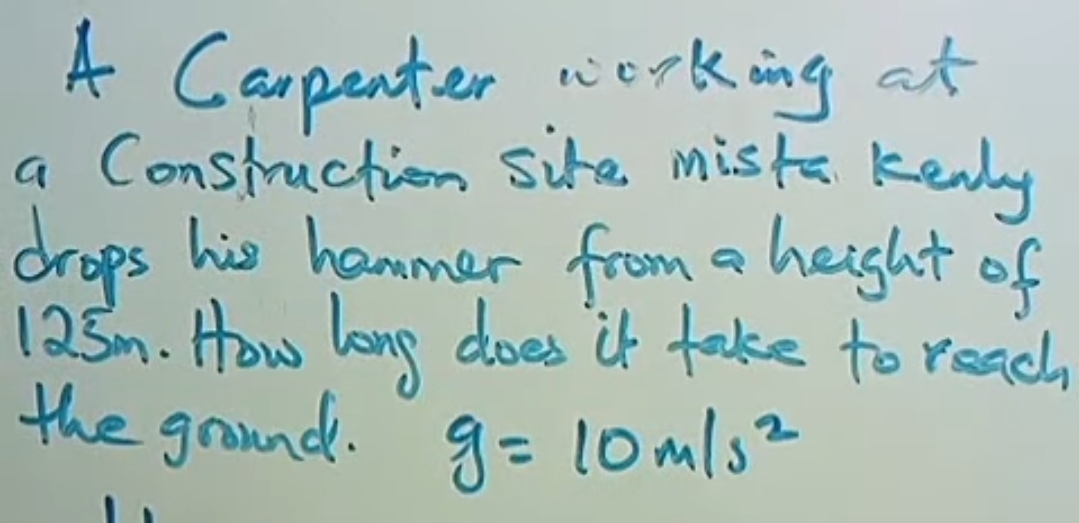 A Carpenter working at
a Construction site mista kenly
drops his hammer from a height of
125m. How long does it take to reach
the ground. g = 10 m/s²